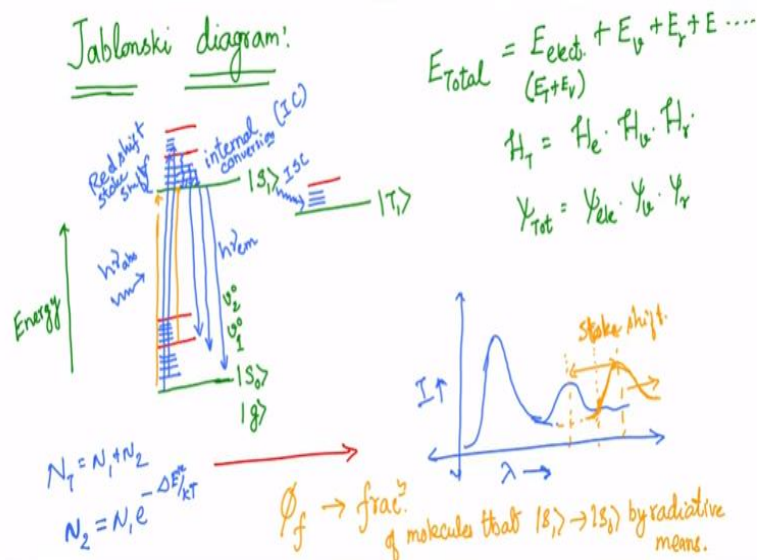 Jablonski diagram:
E_Total = E_elect. + E_v + E_r + E ....
(E_T+E_V)
H_T = H_e . H_v . H_r.
Ψ_Tot = Ψ_ele . Ψ_v . Ψ_r
Red shift
stoke
shift
internal
conversion
(IC)
|S₁⟩
ISC
|T₁⟩
hν_abs
hν_em
Energy
v₂⁰
v₁⁰
|S₀⟩
|g⟩
stoke shift.
I ↑
λ →
N_T = N₁ + N₂
N₂ = N₁ e^
ϕ_f → fracⁿ.
of molecules that |S₁⟩ → |S₀⟩ by radiative
means.